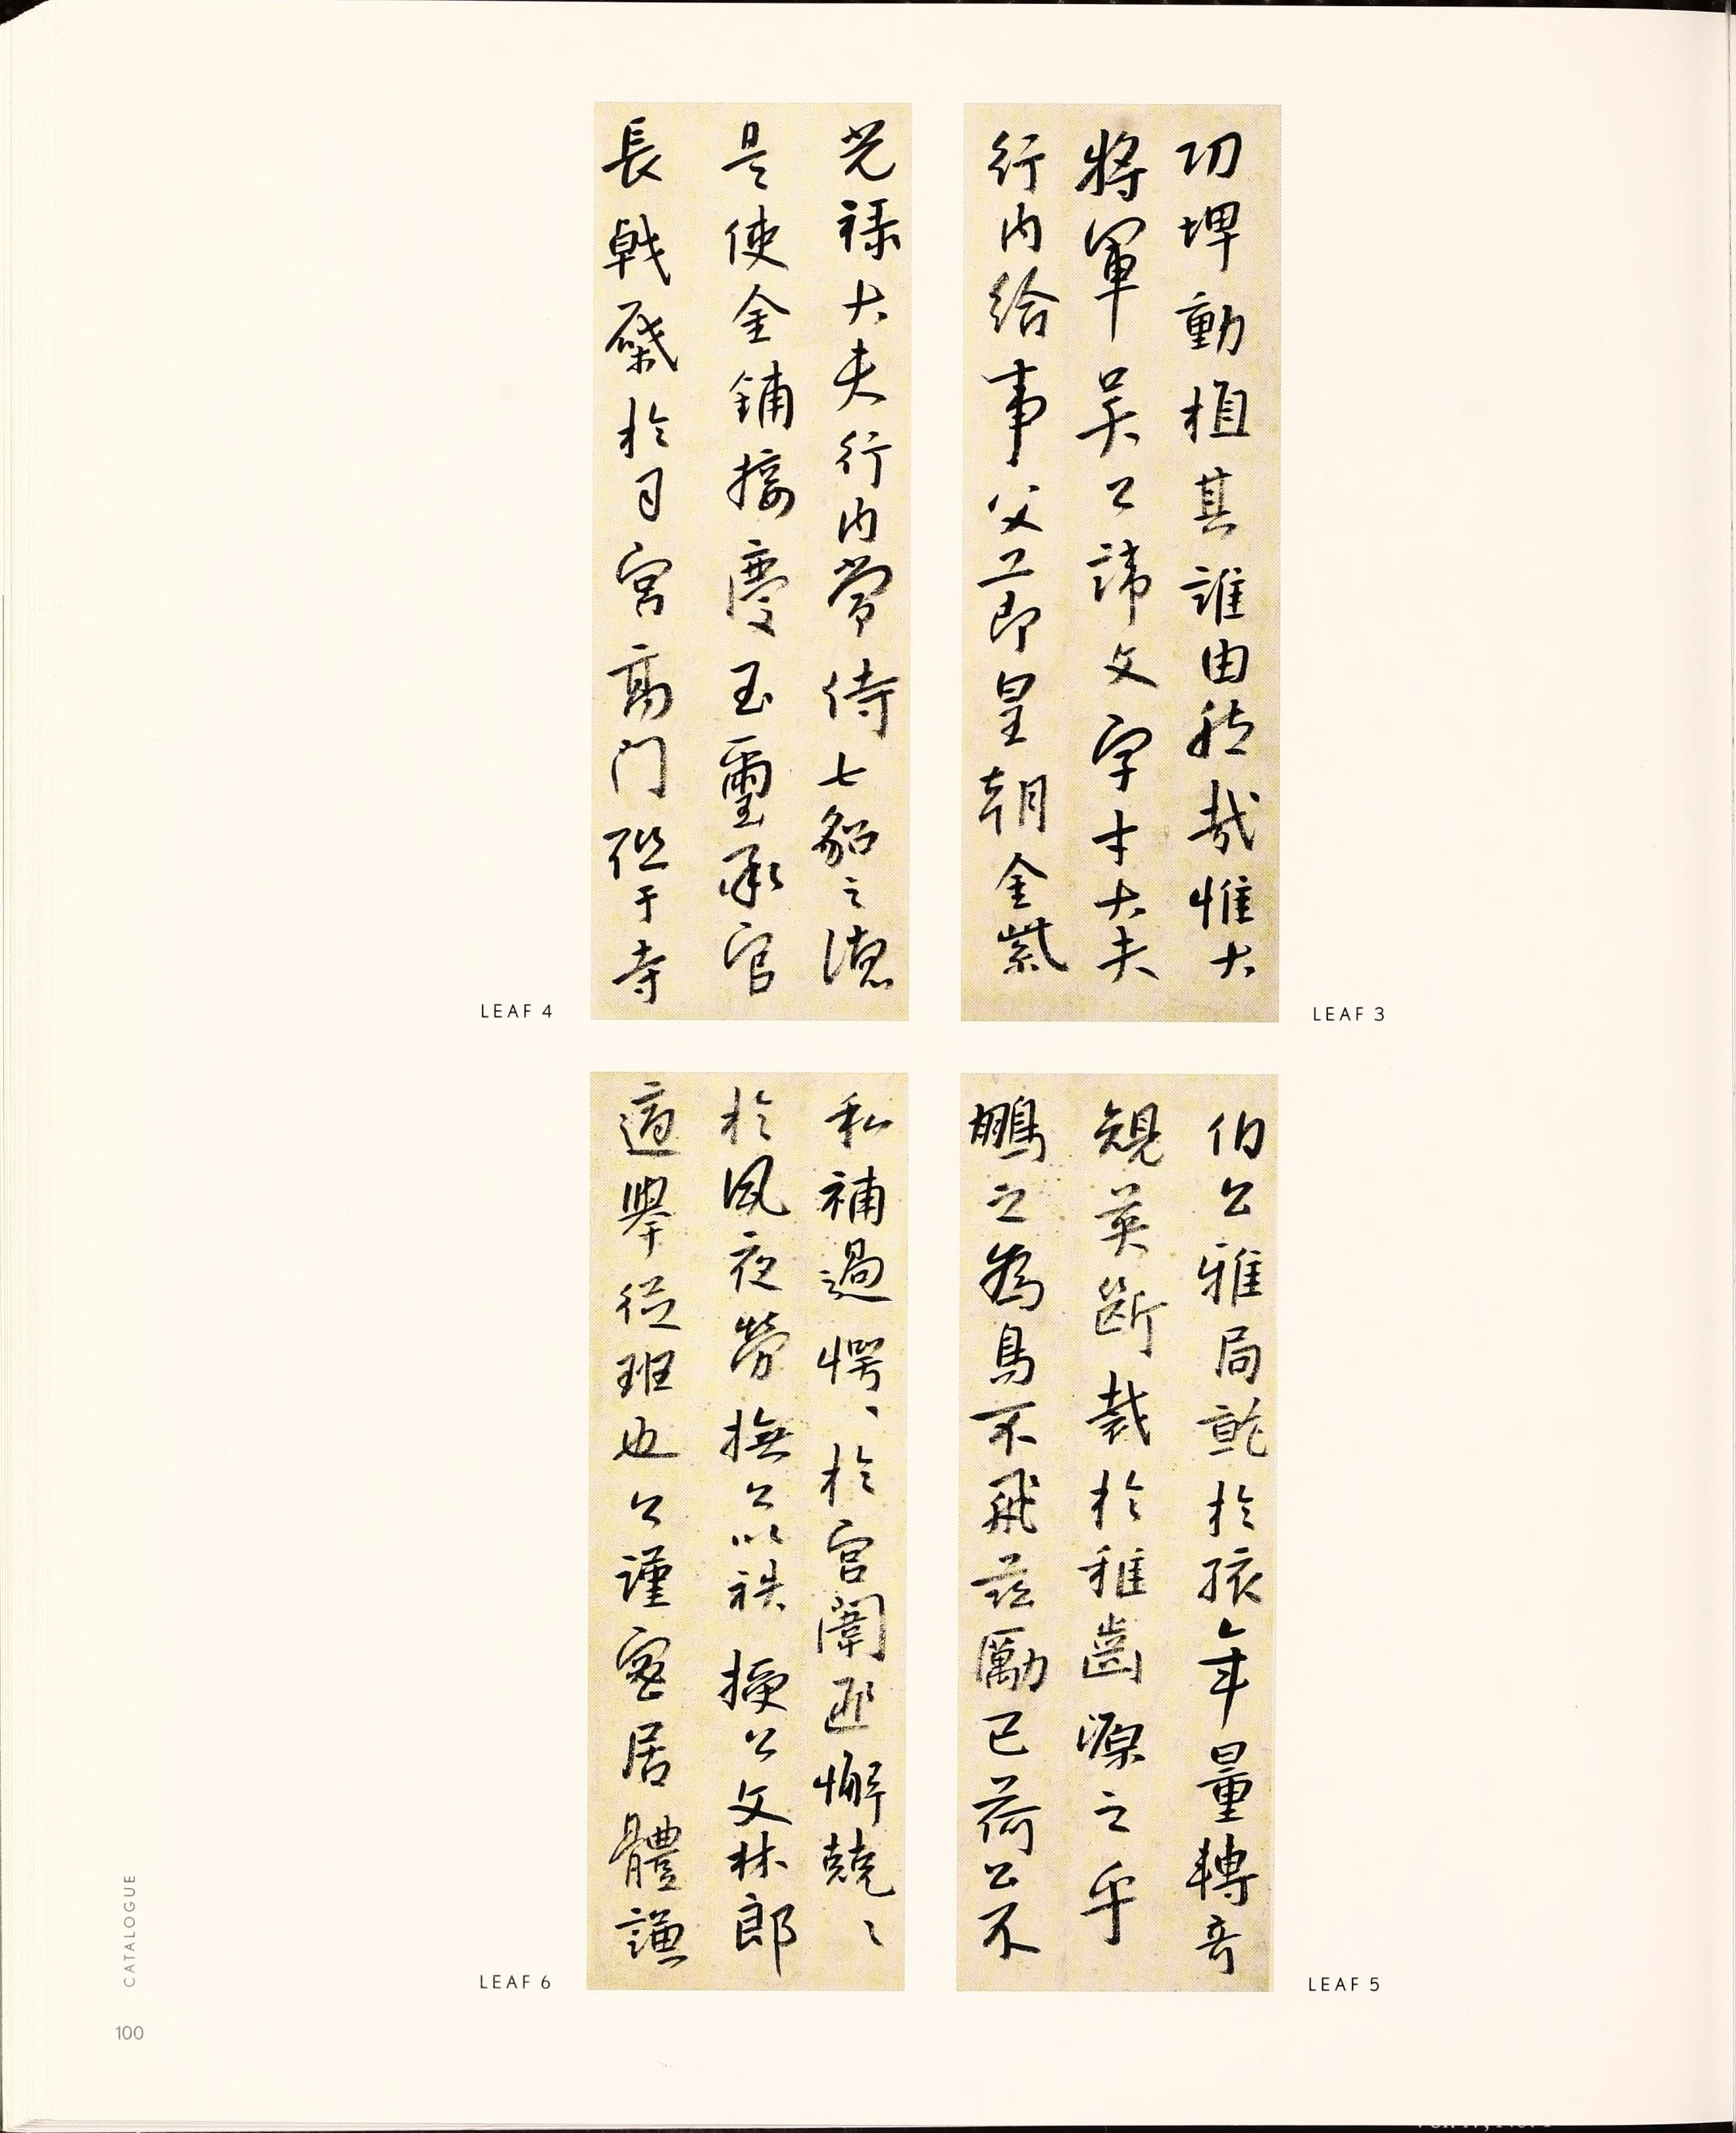 功埤動植其誰由然哉惟大
將軍吳公諱文字才大夫
行內給事父工即皇朝金紫
LEAF 3
光祿大夫行內常侍七貂之
是使金鋪接慶玉璽承官
長戟棨於司宮高門于寺
LEAF 4
伯公雅局乾於孩年量轉奇
英斷裁於稚齒源之乎
鵬之為鳥不飛茲勵已荷公不
LEAF 5
私補過愕々於宮闈匪懈兢々
於夙夜勞撫公以袟授公文林郎
適舉從班也公謹密居體謙
LEAF 6
CATALOGUE
100